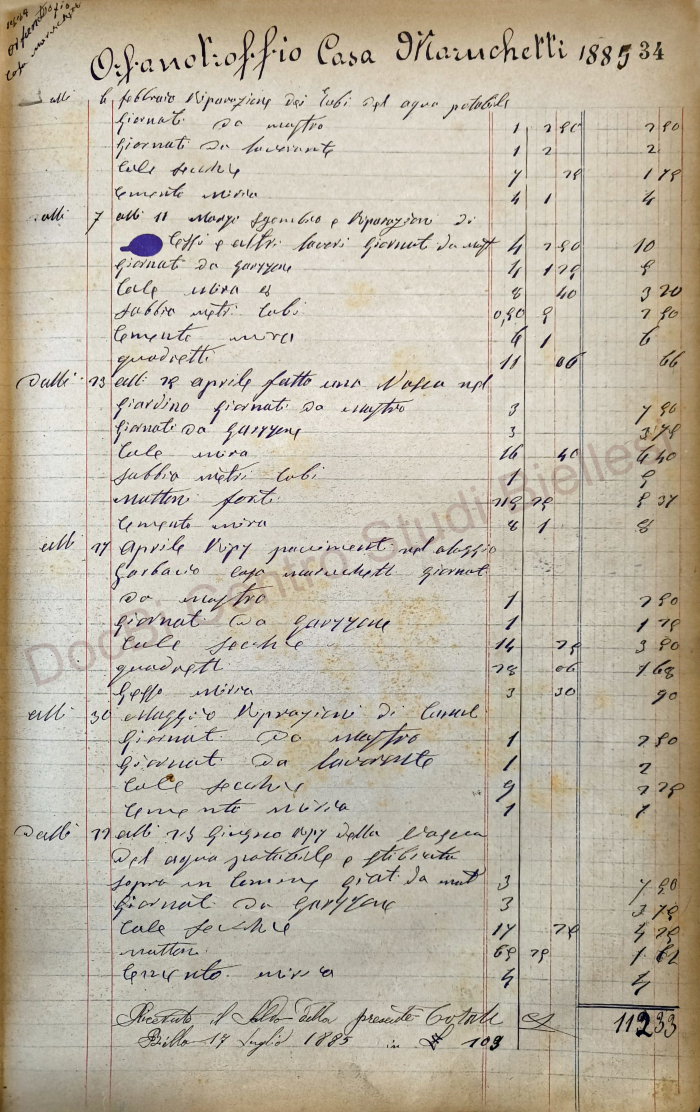 1884
Orfanotrofio
Casa Maruchetti
Orfanotroffio Casa Maruchetti 1885 34
alli 6 febbraio Riparazione dei tubi del aqua potabile
Giornati da mastro 1 2 50 2 50
Giornati da lavorante 1 2 2
Cale secchie 7 25 1 75
Cemento mira 4 1 4
alli 7 alli 11 Marzo Sgombro e Riparazioni di
Cessi e altri lavori Giornat da mast 4 2 50 10
Giornati da Garzzone 4 1 25 5
Cale mira es 8 40 3 20
Sabbia metri Cubi 0,50 5 2 50
Cemento mira 6 1 6
quadretti 11 06 66
Dalli 23 alli 25 aprile fatto una Vasca nel
Giardino Giornati da mastro 3 7 50
Giornati da Garzzone 3 3 75
Cale mira 16 40 6 40
Sabbia metri Cubi 1 5
Mattoni forti 215 25 5 37
Cemento mira 8 1 8
alli 27 Aprile Ripz pavimenti nel alogio
Garbacio Casa maruchetti Giornat
da mastro 1 2 50
Giornati da Garzzone 1 1 25
Cale secchie 14 25 3 50
quadretti 28 06 1 68
Gesso mira 3 30 90
alli 30 Maggio Riprazioni di Canal
Giornati da mastro 1 2 50
Giornati da lavorante 1 2
Cale secchie 9 2 25
Cemento mira 1 1
Dalli 22 alli 25 Giugno Ripz della Vasca
del aqua potabile e stibiata
sopra in Cemen giat da mast 3 7 50
Giornati da Garzzone 3 3 75
Cale secchie 17 25 4 25
mattoni 65 25 1 62
Cemento mira 4 4
Ricevuto il Saldo della presente Totale 112 33
Biella 17 Luglio 1885 in 109
DocBi Centro Studi Biellesi